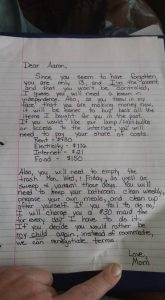 Dear Aaron,
Since you seem to have forgotten
you are only 13, and I'm the parent
and that you won't be controlled,
I guess you will need a lesson in
independence. Also, as you threw in my
face that you are making money now,
it will be easier to buy back all the
items I bought for you in the past.
If you would like your lamp/lightbulbs
or access to the internet, you will
need to pay your share of costs.
Rent - $430
Electricity - $116
Internet - $21
Food - $150
Also, you will need to empty the
trash Mon, Wed, & Friday as well as
sweep & vacuum those days. You will
need to keep your bathroom clean weekly,
prepare your own meals, and clean up
after yourself. If you fail to do so,
I will charge you a $30 maid fee
for every day I have to do it.
If you decide you would rather be
my child again, instead of a roommate,
we can renegotiate terms.
Love,
Mom